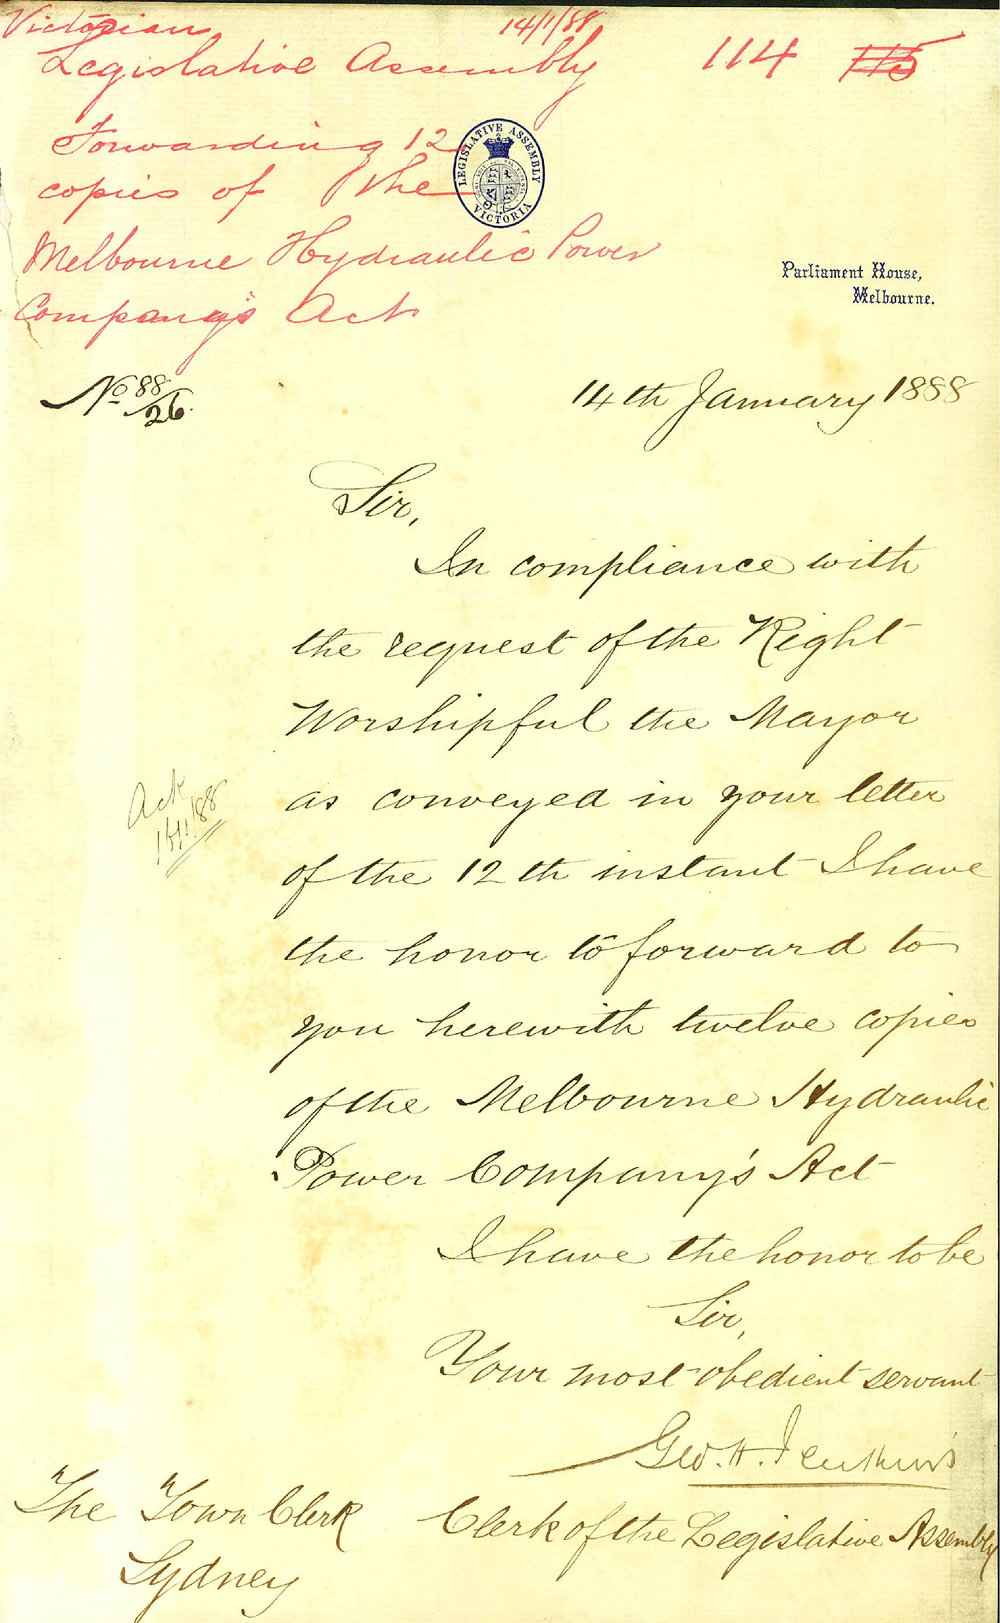 Victorian 14/1/88
Legislative Assembly 114 115
Forwarding 12
copies of the
Melbourne Hydraulic Power
Company's Act
LEGISLATIVE ASSEMBLY
VICTORIA
Parliament House,
Melbourne.
No 88/26.
14th January 1888
Sir,
In compliance with
the request of the Right
Worshipful the Mayor
as conveyed in your letter
Ack
of the 12th instant I have
the honor to forward to
you herewith twelve copies
of the Melbourne Hydraulic
Power Company's Act
I have the honor to be
Sir,
Your most obedient servant
Geo. H. Jenkins
Clerk of the Legislative Assembly
The Town Clerk
Sydney